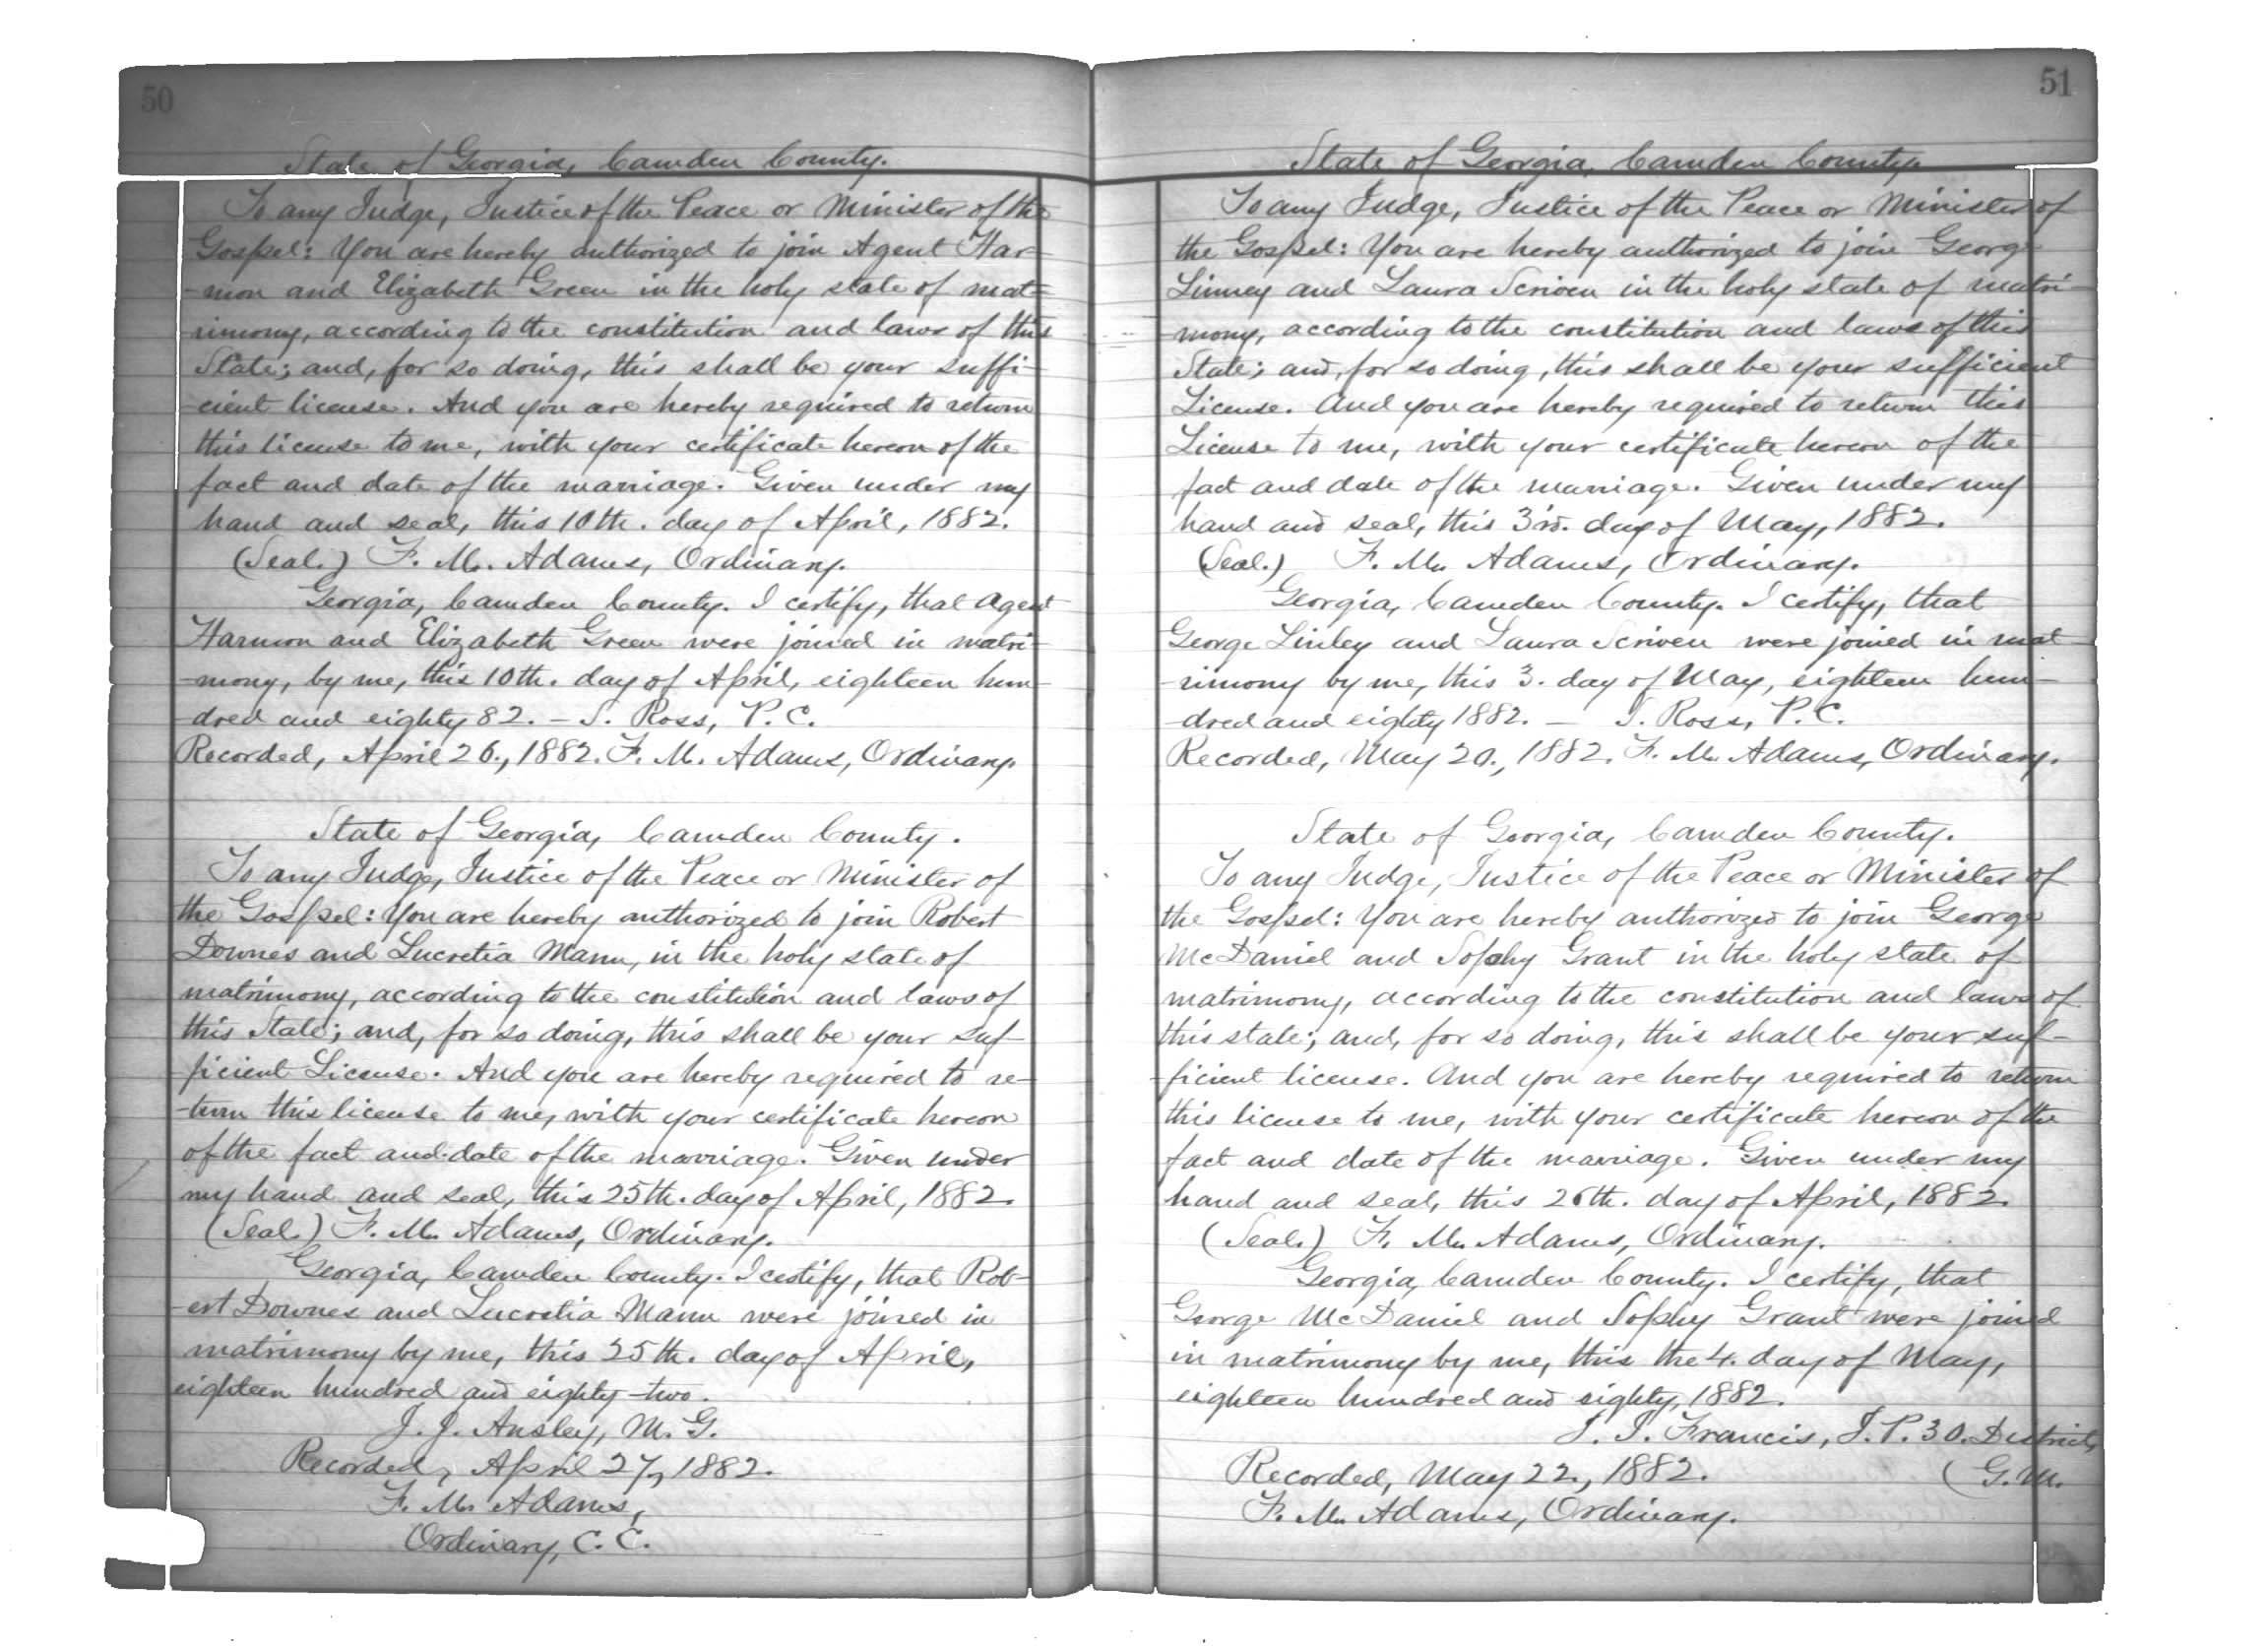 50
State of Georgia, Camden County.
To any Judge, Justice of the Peace or Minister of the
Gospel: You are hereby authorized to join Agent Har-
-mon and Elizabeth Green in the holy state of mat-
rimony, according to the constitution and laws of this
State; and, for so doing, this shall be your suffi-
-cient license. And you are hereby required to return
this license to me, with your certificate hereon of the
fact and date of the marriage. Given under my
hand and seal, this 10th. day of April, 1882.
(Seal.) F. M. Adams, Ordinary.
Georgia, Camden County. I certify, that Agent
Harmon and Elizabeth Green were joined in matri-
-mony, by me, this 10th. day of April, eighteen hun-
-dred and eighty 82. – S. Ross, P. C.
Recorded, April 26., 1882. F. M. Adams, Ordinary.
State of Georgia, Camden County.
To any Judge, Justice of the Peace or Minister of
the Gospel: You are hereby authorized to join Robert
Downes and Lucretia Mann, in the holy state of
matrimony, according to the constitution and laws of
this State; and, for so doing, this shall be your suf-
-ficient License. And you are hereby required to re-
-turn this license to me, with your certificate hereon
of the fact and date of the marriage. Given under
my hand and seal, this 25th. day of April, 1882.
(Seal.) F. M. Adams, Ordinary.
Georgia, Camden County. I certify, that Rob-
-ert Downes and Lucretia Mann were joined in
matrimony by me, this 25th. day of April,
eighteen hundred and eighty-two.
J. J. Ansley, M. G.
Recorded, April 27, 1882.
F. M. Adams,
Ordinary, C. C.
51
State of Georgia, Camden County.
To any Judge, Justice of the Peace or Minister of
the Gospel: You are hereby authorized to join George
Linney and Laura Scriven in the holy state of matri-
mony, according to the constitution and laws of this
State; and, for so doing, this shall be your sufficient
License. And you are hereby required to return this
License to me, with your certificate hereon of the
fact and date of the marriage. Given under my
hand and seal, this 3rd. day of May, 1882.
(Seal.) F. M. Adams, Ordinary.
Georgia, Camden County. I certify, that
George Linley and Laura Scriven were joined in mat
-rimony by me, this 3. day of May, eighteen hun-
-dred and eighty 1882. – S. Ross, P. C.
Recorded, May 20., 1882. F. M. Adams, Ordinary.
State of Georgia, Camden County.
To any Judge, Justice of the Peace or Minister of
the Gospel: You are hereby authorized to join George
McDaniel and Sophy Grant in the holy state of
matrimony, according to the constitution and laws of
this state; and, for so doing, this shall be your suf-
-ficient license. And you are hereby required to return
this license to me, with your certificate hereon of the
fact and date of the marriage. Given under my
hand and seal, this 26th. day of April, 1882.
(Seal.) F. M. Adams, Ordinary.
Georgia, Camden County. I certify, that
George McDaniel and Sophy Grant were joined
in matrimony by me, this the 4. day of May,
eighteen hundred and eighty, 1882.
J. J. Francis, J. P. 30. District,
Recorded, May 22., 1882. (G. M.
F. M. Adams, Ordinary.